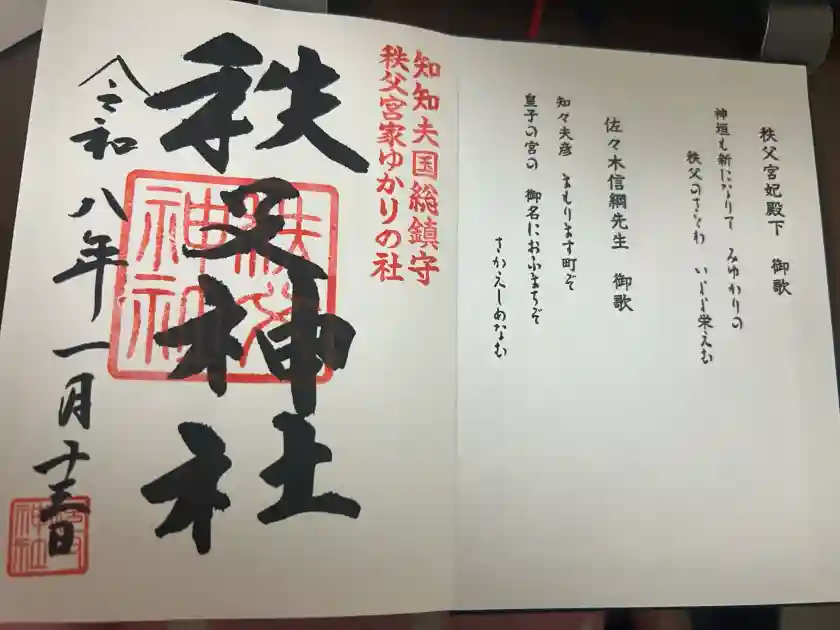 秩父宮妃殿下 御歌
神垣も新になりて みゆかりの
秩父のさとわ いよよ栄えむ
佐々木信綱先生 御歌
知々夫彦 まもります町ぞ
皇子の宮の 御名におふまちぞ
さかえしめなむ
知知夫国総鎮守
秩父宮家ゆかりの社
秩父神社
秩父神社
令和八年一月十三日